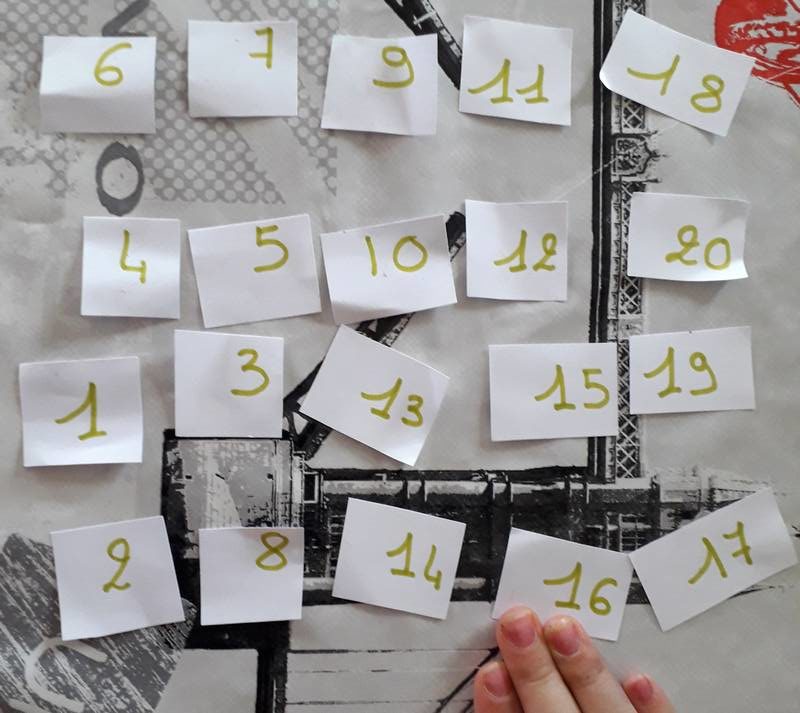 6 7 9 11 18
4 5 10 12 20
1 3 13 15 19
2 8 14 16 17